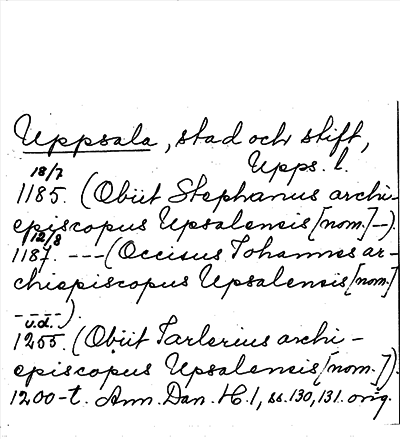 Uppsala, stad och stift,
Upps. l.
18/7
1185. (Obiit Stephanus archi-
episcopus Upsalensis [nom.] --).
12/8
1187. --- (Occisus Johannes ar-
chiepiscopus Upsalensis [nom.]
---).
u.d.
1255. (Obiit Jarlerius archi-
episcopus Upsalensis [nom.]).
1200-t. Ann. Dan. H. 1, ss. 130, 131. orig.